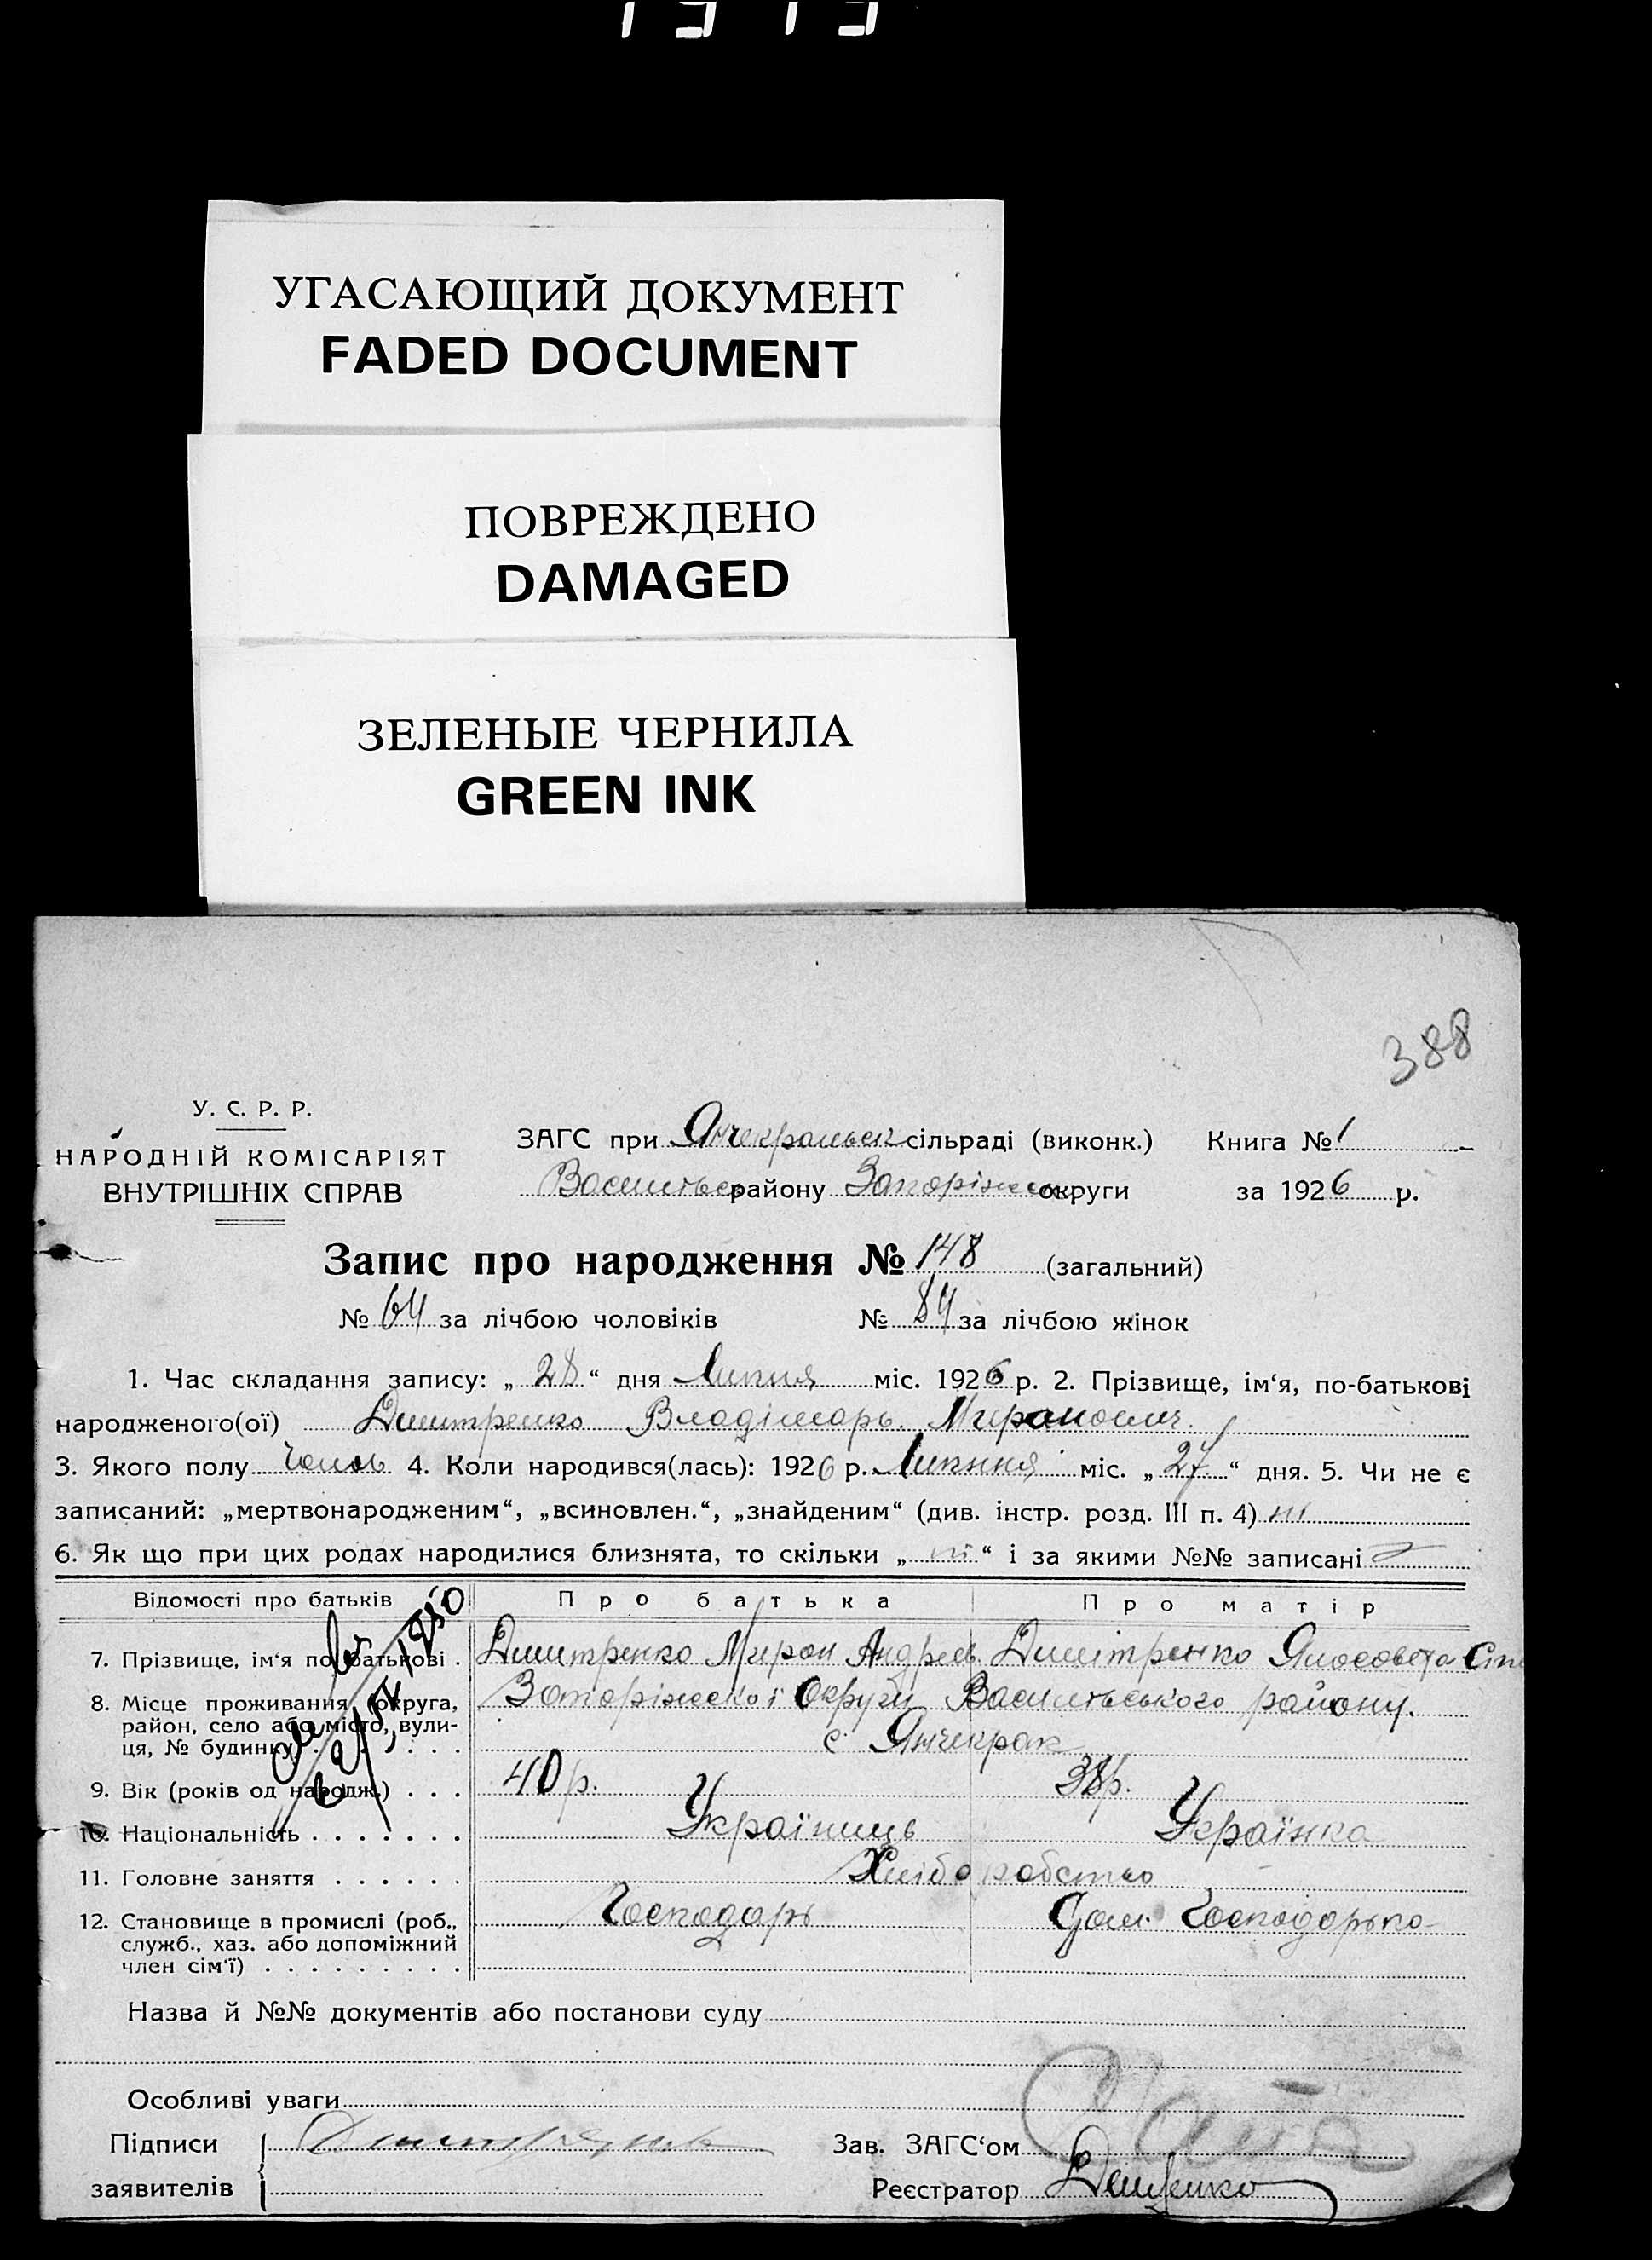 УГАСАЮЩИЙ ДОКУМЕНТ
FADED DOCUMENT
ПОВРЕЖДЕНО
DAMAGED
ЗЕЛЕНЫЕ ЧЕРНИЛА
GREEN INK
388
У. С. Р. Р.
НАРОДНІЙ КОМІСАРІЯТ
ВНУТРІШНІХ СПРАВ
ЗАГС при Янчекракськ сільраді (виконк.) Книга № 1
Васильевс району Запоріжськ округи за 1926 р.
Запис про народження № 148 (загальний)
№ 64 за лічбою чоловіків № 84 за лічбою жінок
1. Час складання запису: „ 28 “ дня Липня міс. 1926 р. 2. Прізвище, ім‘я, по-батькові
народженого(ої) Дмитренко Владімарь Миронович.
3. Якого полу Чолов 4. Коли народився(лась): 1926 р. Липння міс. „ 27 “ дня. 5. Чи не є
записаний: „мертвонародженим“, „всиновлен.“, „знайденим“ (див. інстр. розд. III п. 4) ні
6. Як що при цих родах народилися близнята, то скільки „ ні “ і за якими №№ записані
Відомості про батьків Про батька Про матір
7. Прізвище, ім‘я по батькові . Дмитренко Мирон Андреев. Дмитренко
8. Місце проживання (округа, район, село або місто, вулиця, № будинку) . . . . . Запоріжської Округи Васильевського району.
с Янчекрак
9. Вік (років од народж.) . . . 40 р. 38 р.
10. Національність . . . . . . . Українець Українка
11. Головне заняття . . . . . . Хліборобство
12. Становище в промислі (роб., Господарь Дом. Господарька
служб., хаз. або допоміжний
член сім‘ї) . . . . . . . . .
Назва й №№ документів або постанови суду
Особливі уваги
Підписи Зав. ЗАГС‘ом
заявителів Реєстратор